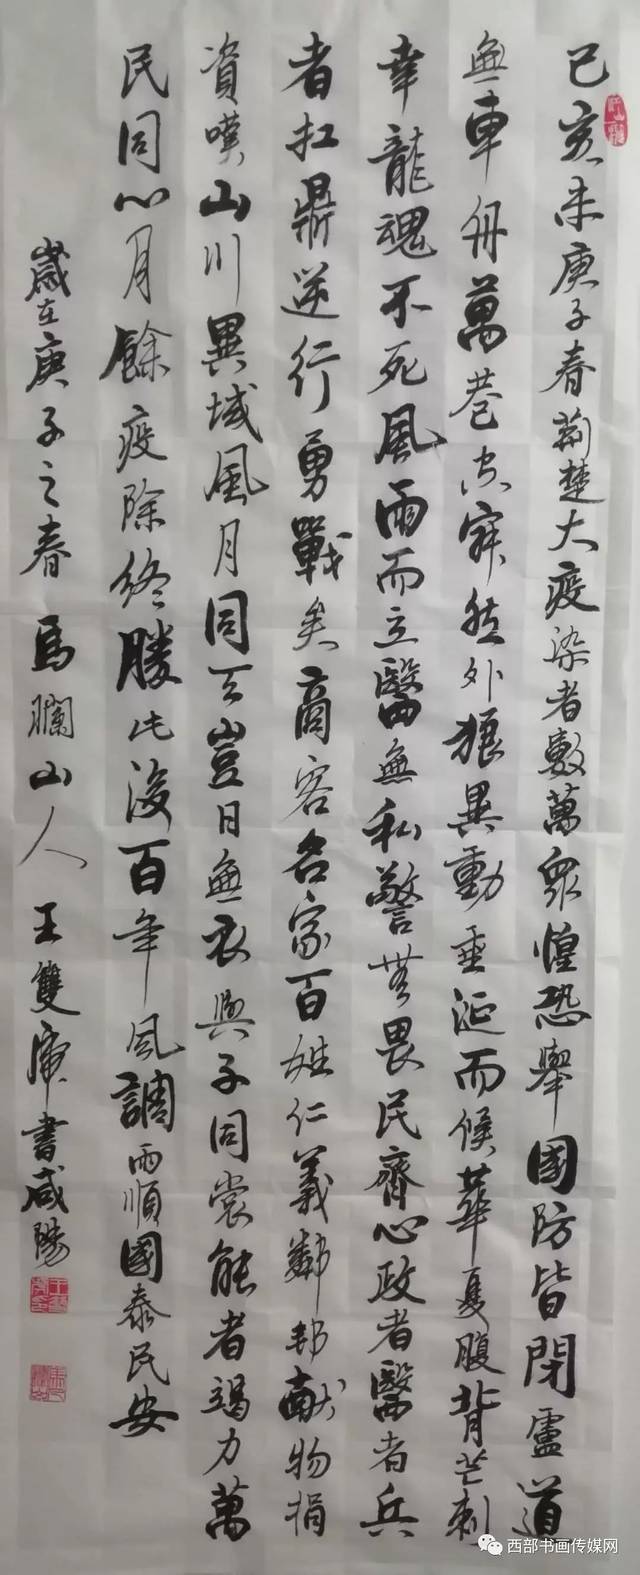 己亥末庚子春荊楚大疫染者數萬眾惶恐舉國防皆閉盧道
無車舟萬巷空寂然外狼異動垂涎而候華夏腹背芒刺
幸龍魂不死風雨而立醫無私警無畏民齊心政者醫者兵
者扛鼎逆行勇戰矣商客名家百姓仁義鄰邦献物捐
資嘆山川異域風月同天豈曰無衣與子同裳能者竭力萬
民同心月餘疫除終勝此後百年風調雨順國泰民安
歲在庚子之春馬瀾山人王雙虎書咸陽
西部书画传媒网